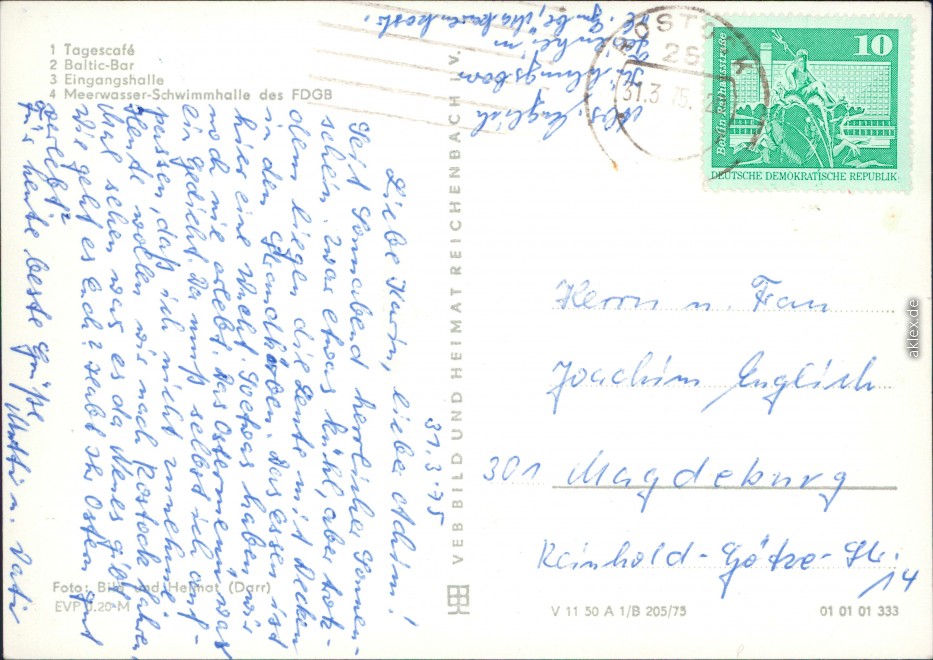 1 Tagescafé
2 Baltic-Bar
3 Eingangshalle
4 Meerwasser-Schwimmhalle des FDGB
31.3.75
Liebe Karin, lieber Achim!
Seit Sonnabend herrlicher Sonnen-
schein, zwar etwas kühl, aber trotz-
dem liegen die Leute mit Decken
in den Strandkörben. Das Essen ist
hier eine Wucht. Soetwas haben wir
noch nie erlebt. Das Ostermenü war
ein Gedicht. Da muß selbst ich auf-
passen, daß ich nicht zunehme.
Heute wollen wir nach Rostock fahren,
mal sehen was es da Neues gibt.
Wie geht es Euch? Habt Ihr Ostern gut
verlebt?
Für heute beste Grüße
Mutti u. Vati
Foto: Bild und Heimat (Darr)
EVP 0.20 M
VEB BILD UND HEIMAT REICHENBACH i. V.
Abs. Englich
Kühlungsborn
ROSTOCK
26
31.3.75
10
Berlin Rathausstraße
DEUTSCHE DEMOKRATISCHE REPUBLIK
Herrn u. Frau
Joachim Englich
301 Magdeburg
Reinhold-Götze-Str.
14
V 11 50 A 1/B 205/75
01 01 01 333
aklex.de